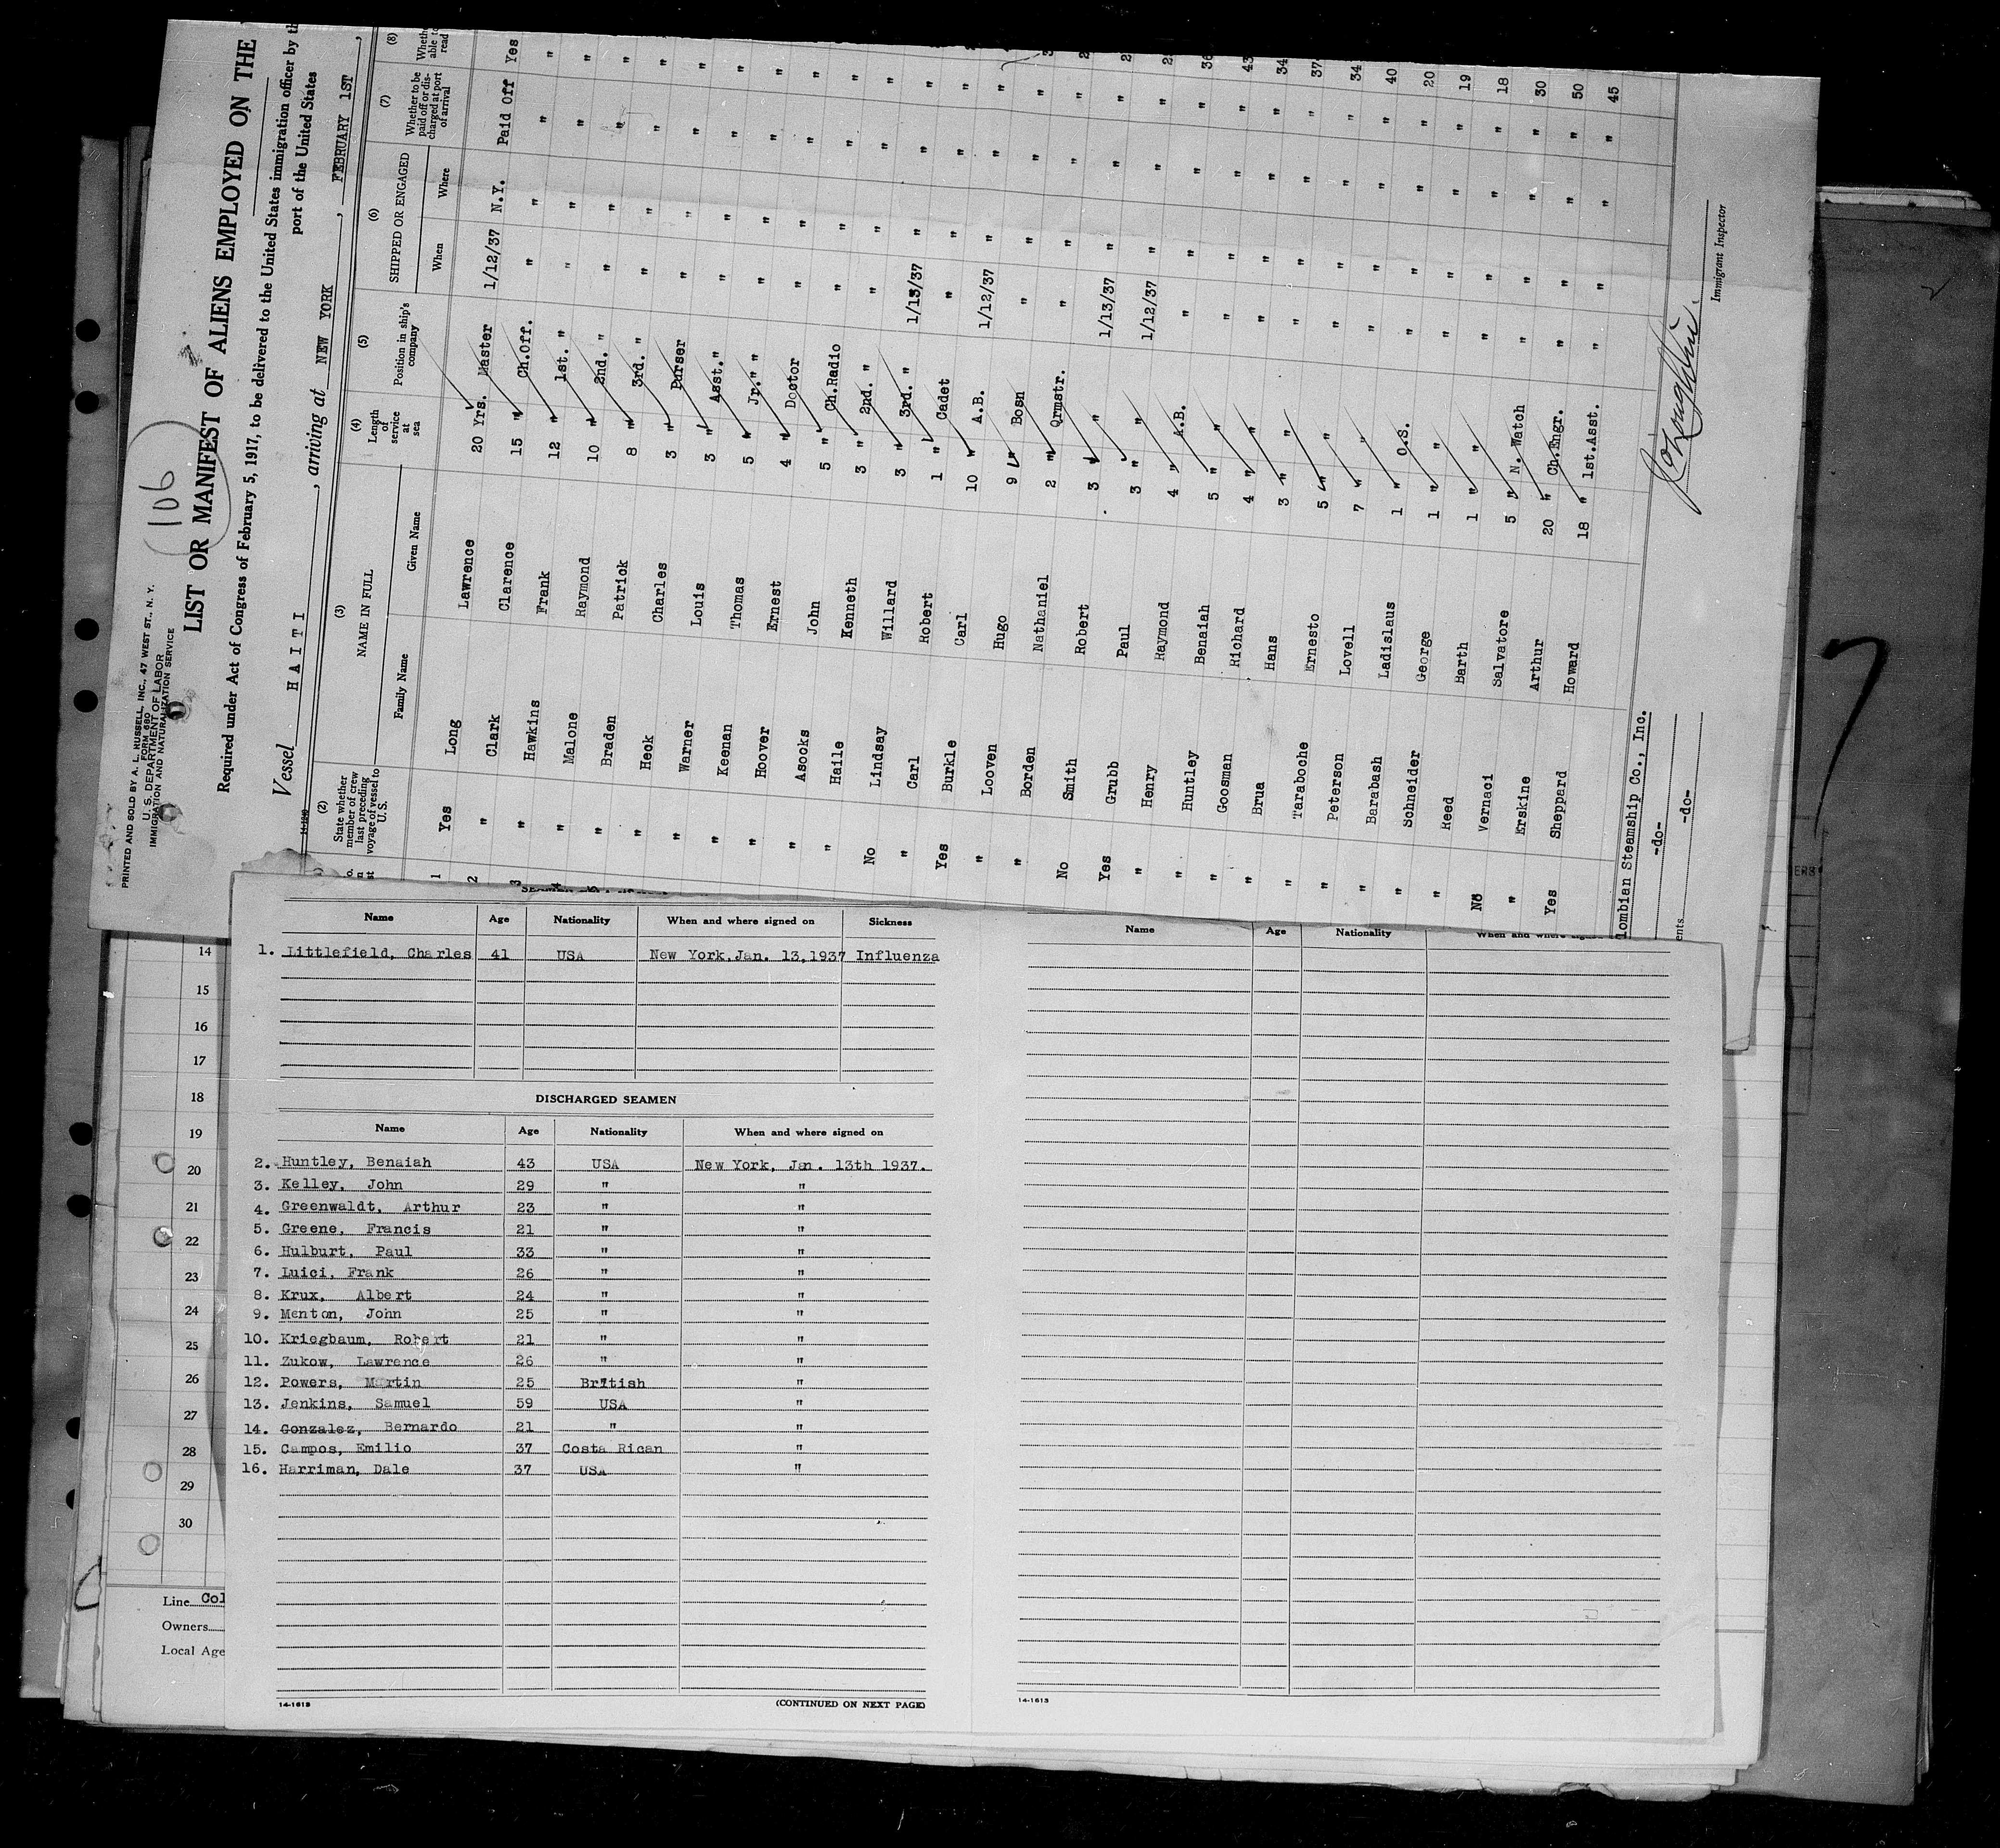 106
PRINTED AND SOLD BY A. L. RUSSELL, INC., 47 WEST ST., N. Y.
FORM 680
U. S. DEPARTMENT OF LABOR
IMMIGRATION AND NATURALIZATION SERVICE
LIST OR MANIFEST OF ALIENS EMPLOYED ON THE
Required under Act of Congress of February 5, 1917, to be delivered to the United States immigration officer by th
port of the United States
Vessel HAITI, arriving at NEW YORK, FEBRUARY 1ST,
(2) (3) (4) (5) (6) (7) (8)
State whether member of crew last preceding voyage of vessel to U.S. NAME IN FULL Length of service at sea Position in ship's company SHIPPED OR ENGAGED Whether to be paid off or discharged at port of arrival
Family Name Given Name When Where
1 Yes Long Lawrence 20 Yrs. Master 1/12/37 N.Y. Paid Off Yes
2 " Clark Clarence 15 " Ch.Off. " " " "
3 " Hawkins Frank 12 " 1st. " " " " "
4 " Malone Raymond 10 " 2nd. " " " " "
5 " Braden Patrick 8 " 3rd. " " " " "
" Heck Charles 3 " Purser " " " "
" Warner Louis 3 " Asst." " " " "
" Keenan Thomas 5 " Jr." " " " " "
" Hoover Ernest 4 " Doctor " " " "
" Asooks John 5 " Ch.Radio " " " "
" Haile Kenneth 3 " 2nd. " " " " "
No Lindsay Willard 3 " 3rd. " 1/13/37 " " "
" Carl Robert 1 " Cadet " " " "
Yes Burkle Carl 10 " A.B. 1/12/37 " " "
" Looven Hugo 9 " Bosn " " " "
" Borden Nathaniel 2 " Qrmstr. " " "
No Smith Robert 3 " " 1/13/37 " "
Yes Grubb Paul 3 " " 1/12/37 " "
" Henry Raymond 4 " A.B. " " "
" Huntley Benaiah 5 " " " " " 43
" Goosman Richard 4 " " " " " 34
" Brua Hans 3 " " " " " 37
" Taraboche Ernesto 5 " " " " " 34
" Peterson Lovell 7 " " " " " 40
" Barabash Ladislaus 1 " O.S. " " " 20
" Schneider George 1 " " " " " 19
" Reed Barth 1 " " " " " 18
No Vernaci Salvatore 5 " N. Watch " " " 30
" Erskine Arthur 20 " Ch.Engr. " " " 50
Yes Sheppard Howard 18 " 1st.Asst. " " " 45
lombian Steamship Co., Inc.
-do-
ents -do-
Immigrant Inspector
Name Age Nationality When and where signed on Sickness
1. Littlefield, Charles 41 USA New York,Jan. 13,1937 Influenza
DISCHARGED SEAMEN
Name Age Nationality When and where signed on
2. Huntley, Benaiah 43 USA New York, Jan. 13th 1937.
3. Kelley, John 29 " "
4. Greenwaldt, Arthur 23 " "
5. Greene, Francis 21 " "
6. Hulburt, Paul 33 " "
7. Luici, Frank 26 " "
8. Krux, Albert 24 " "
9. Menton, John 25 " "
10. Kriegbaum, Robert 21 " "
11. Zukow, Lawrence 26 " "
12. Powers, Martin 25 British "
13. Jenkins, Samuel 59 USA "
14. Gonzalez, Bernardo 21 " "
15. Campos, Emilio 37 Costa Rican "
16. Harriman, Dale 37 USA "
14-1613 (CONTINUED ON NEXT PAGE)
Name Age Nationality When and where signed
14-1613
14
15
16
17
18
19
20
21
22
23
24
25
26
27
28
29
30
Line Col
Owners
Local Age
7